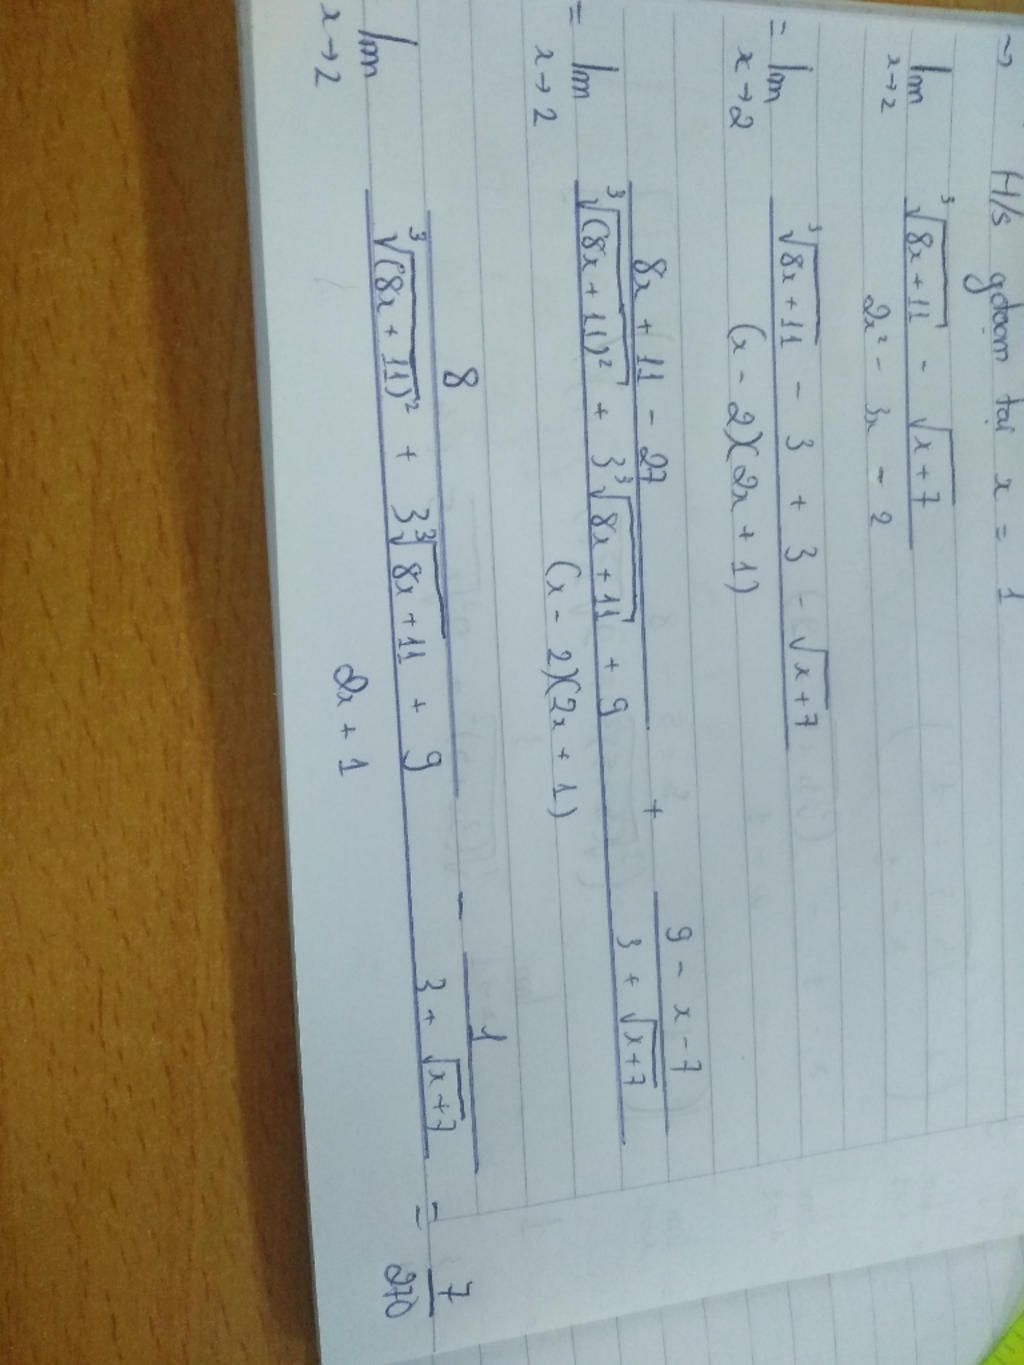 ~> H/s gđoạn tại x = 1
lim x→2 (∛(8x+11) - √(x+7)) / (2x² - 3x - 2)
= lim x→2 (∛(8x+11) - 3 + 3 - √(x+7)) / ((x - 2)(2x + 1))
= lim x→2 ((8x + 11 - 27) / (∛(8x + 11)² + 3∛(8x + 11) + 9) + (9 - x - 7) / (3 + √(x+7))) / ((x - 2)(2x + 1))
lim x→2 (8 / (∛(8x + 11)² + 3∛(8x + 11) + 9) - 1 / (3 + √(x+7))) / (2x + 1) = 7/270